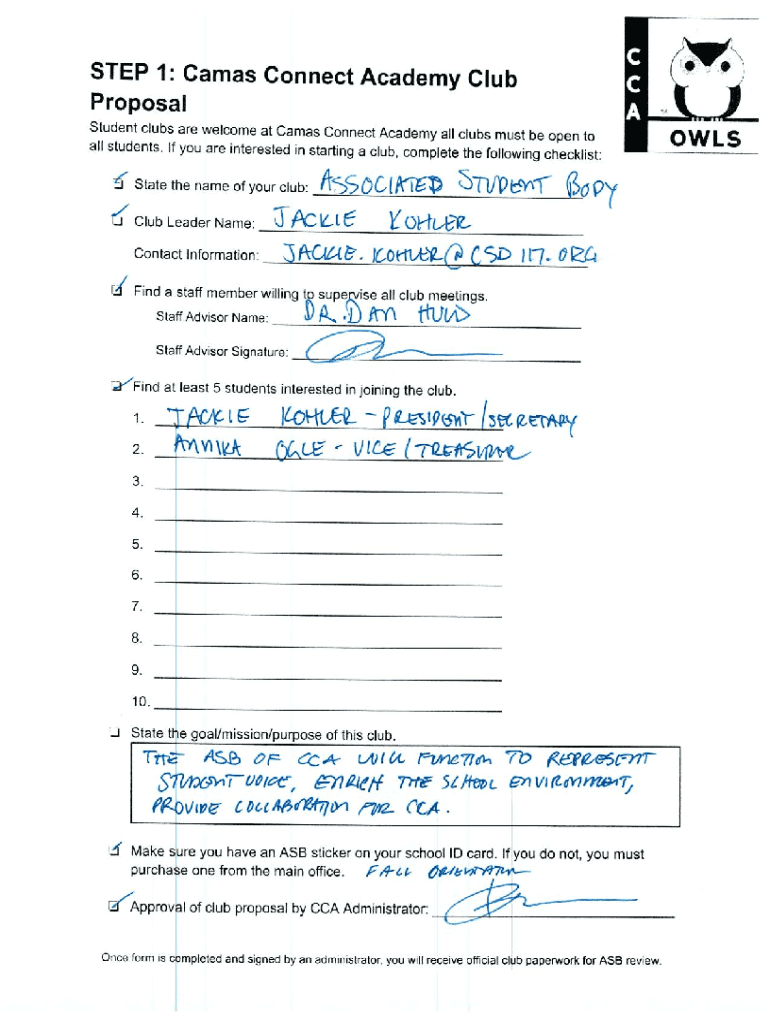 STEP 1: Camas Connect Academy Club
Proposal
C
C
A
OWLS
Student clubs are welcome at Camas Connect Academy all clubs must be open to
all students. If you are interested in starting a club, complete the following checklist:
State the name of your club: ASSOCIATED STUDENT BODY
Club Leader Name: JACKIE KOHLER
Contact Information: JACKIE.KOHLER@CSD117.ORG
Find a staff member willing to supervise all club meetings.
Staff Advisor Name: DR. DAN
Staff Advisor Signature:
Find at least 5 students interested in joining the club.
1. JACKIE KOHLER - PRESIDENT/SECRETARY
2. ANNIKA OGLE - VICE/TREASURER
3.
4.
5.
6.
7.
8.
9.
10.
State the goal/mission/purpose of this club.
THE ASB OF CCA WILL FUNCTION TO REPRESENT
STUDENT VOICE, ENRICH THE SCHOOL ENVIRONMENT,
PROVIDE COLLABORATION FOR CCA.
Make sure you have an ASB sticker on your school ID card. If you do not, you must
purchase one from the main office. FALL ORIENTATION
Approval of club proposal by CCA Administrator:
Once form is completed and signed by an administrator, you will receive official club paperwork for ASB review.